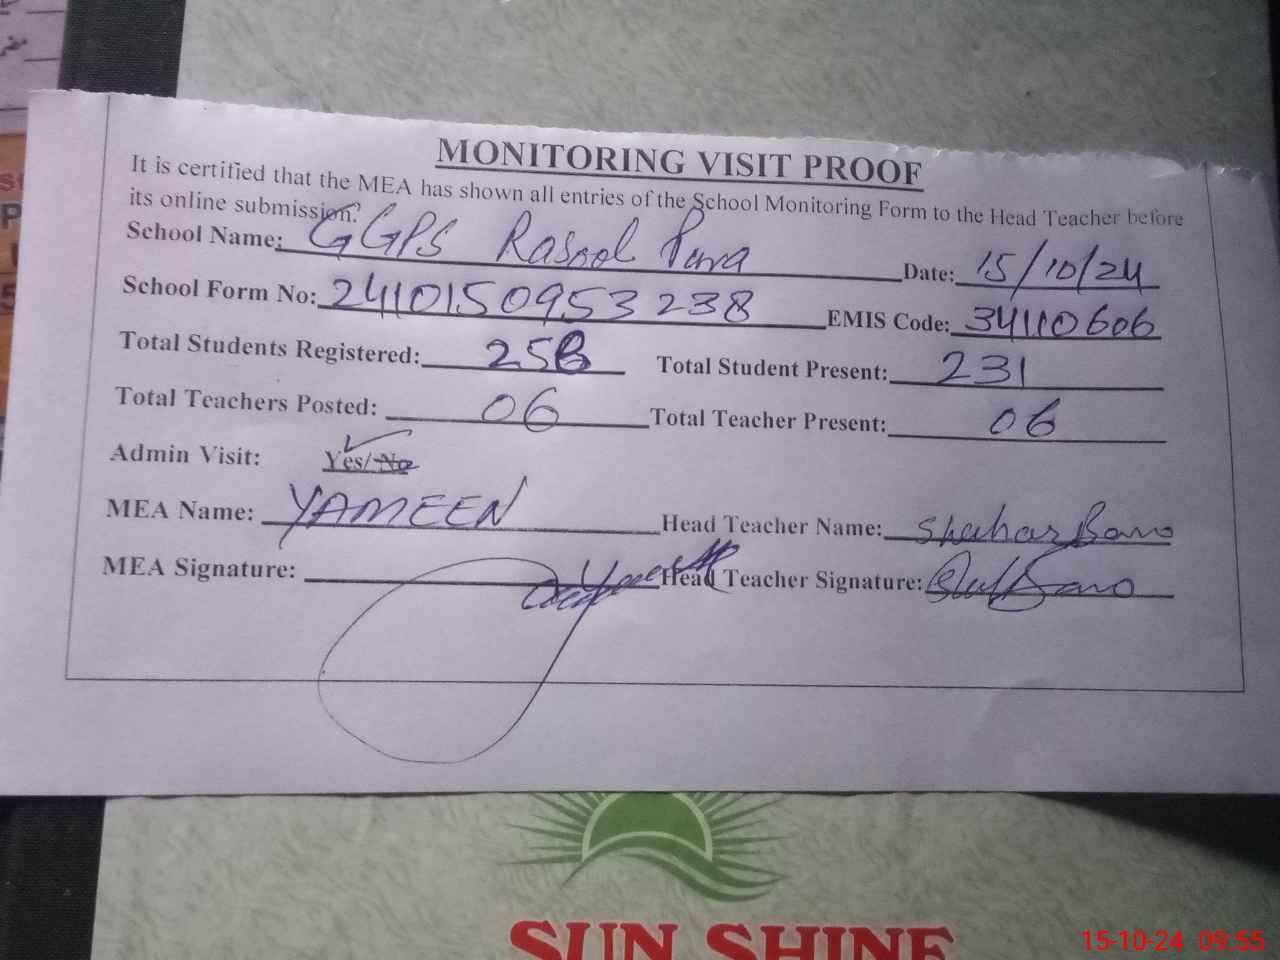 MONITORING VISIT PROOF
It is certified that the MEA has shown all entries of the School Monitoring Form to the Head Teacher before
its online submission.
School Name: GGPS Rasool Pura Date: 15/10/24
School Form No: 2410150953238 EMIS Code: 34110606
Total Students Registered: 25 Total Student Present: 231
Total Teachers Posted: 06 Total Teacher Present: 06
Admin Visit: Yes/No
MEA Name: YAMEEN Head Teacher Name: Shahar Bano
MEA Signature: Head Teacher Signature: Bano
SUN SHINE
15-10-24 09:55